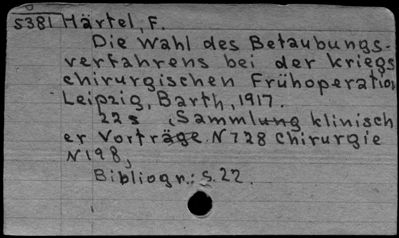 5381 Härtel, F.
Die Wahl des Betaubungs-
verfahrens bei der kriegs
chirurgischen Frühoperation
Leipzig, Barth, 1917.
22s (Sammlung klinisch
er Vorträge. N728 Chirurgie
N198,
Bibliogn.: S. 22.